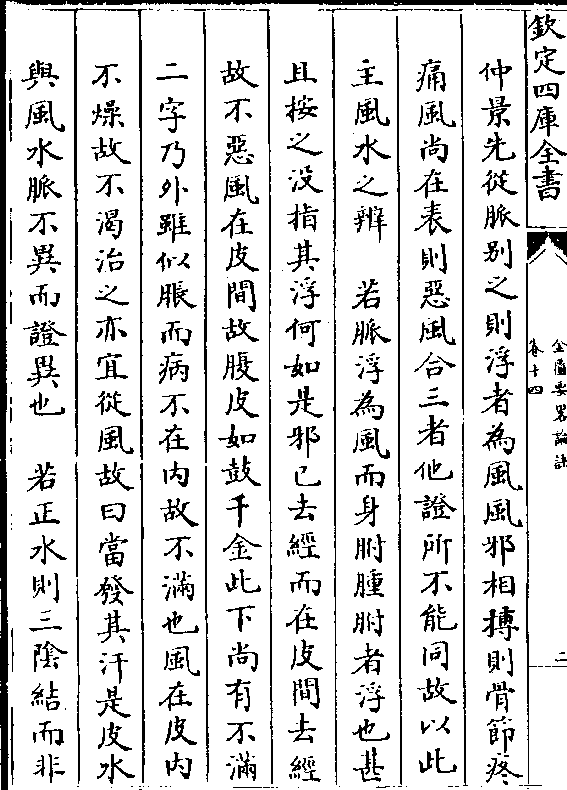 欽定四庫全書
金匱要畧論註
卷十四
二
仲景先從脈别之則浮者為風風邪相摶則骨節疼
痛風尚在表則惡風合三者他證所不能同故以此
主風水之辨　若脈浮為風而身胕腫胕者浮也甚
且按之没指其浮何如是邪已去經而在皮間去經
故不惡風在皮間故腹皮如鼓千金此下尚有不滿
二字乃外雖似脹而病不在内故不滿也風在皮内
不燥故不渴治之亦宜從風故曰當發其汗是皮水
與風水脈不異而證異也　若正水則三陰結而非